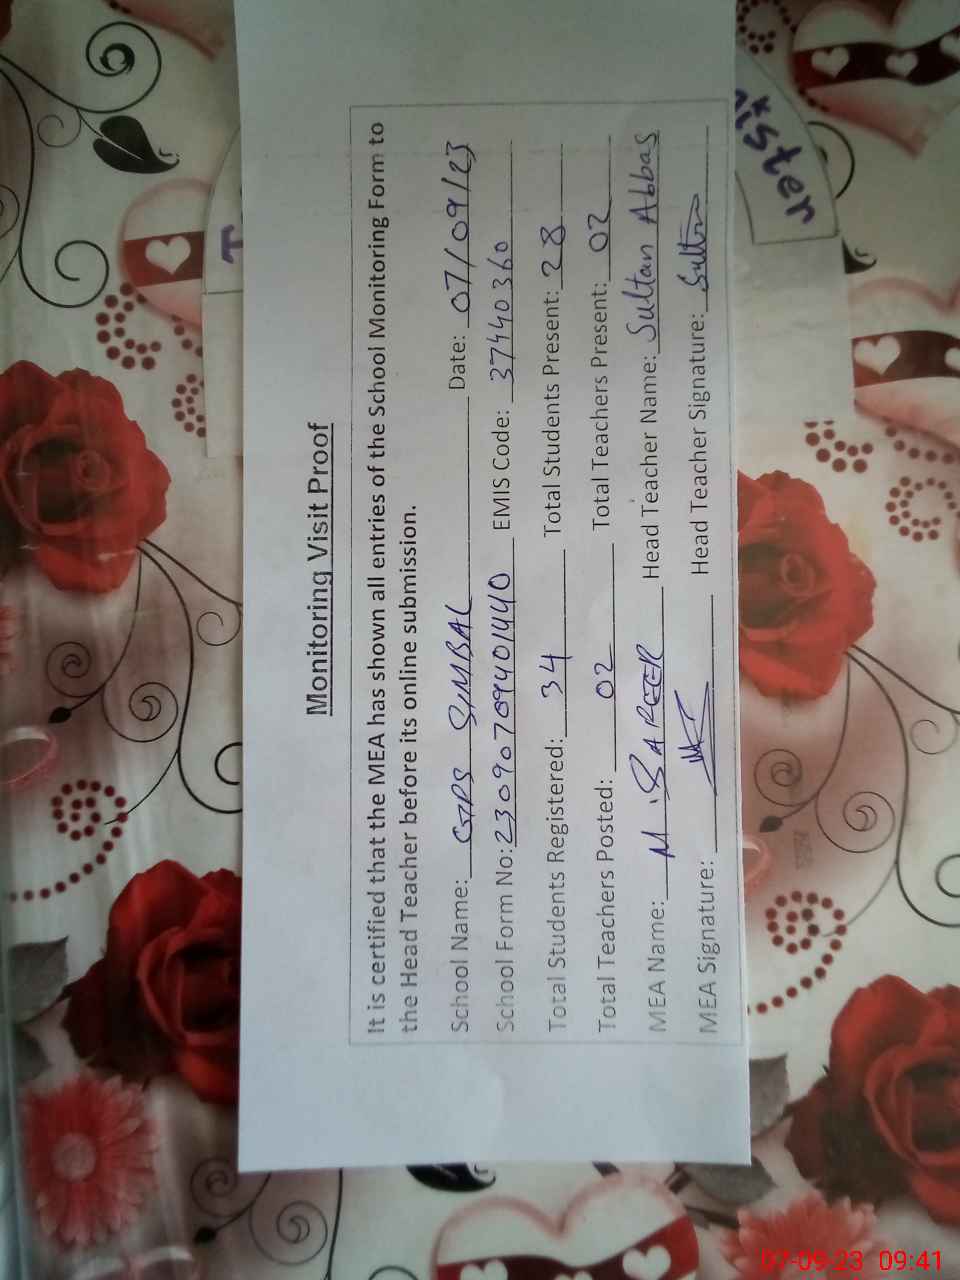 Monitoring Visit Proof
It is certified that the MEA has shown all entries of the School Monitoring Form to
the Head Teacher before its online submission.
School Name: GPS SIMBAL Date: 07/09/23
School Form No: 23090709401440 EMIS Code: 37440360
Total Students Registered: 34 Total Students Present: 28
Total Teachers Posted: 02 Total Teachers Present: 02
MEA Name: M. SAREER Head Teacher Name: Sultan Abbas
MEA Signature: Head Teacher Signature: Sultan
07-09-23 09:41